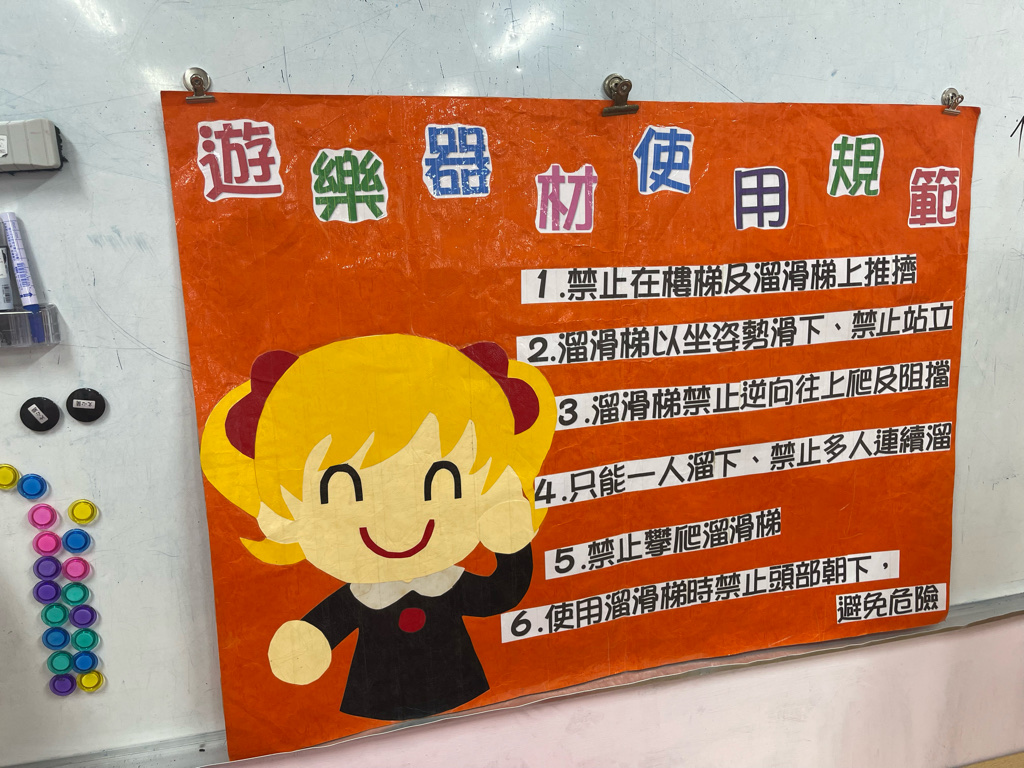 遊樂器材使用規範
1.禁止在樓梯及溜滑梯上推擠
2.溜滑梯以坐姿勢滑下、禁止站立
3.溜滑梯禁止逆向往上爬及阻擋
4.只能一人溜下、禁止多人連續溜
5.禁止攀爬溜滑梯
6.使用溜滑梯時禁止頭部朝下，
避免危險